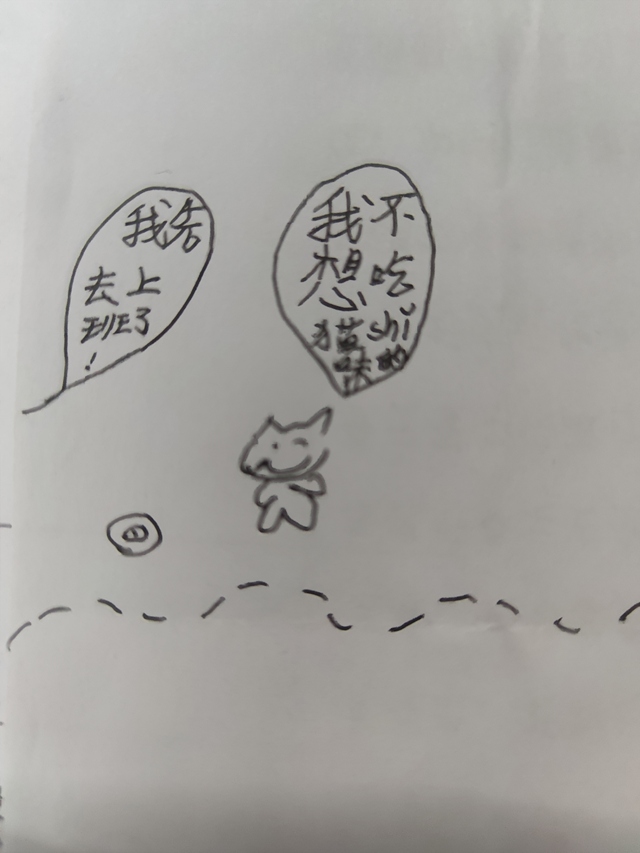 我告
去上
班了
!
我不
想吃
猫shi
味的